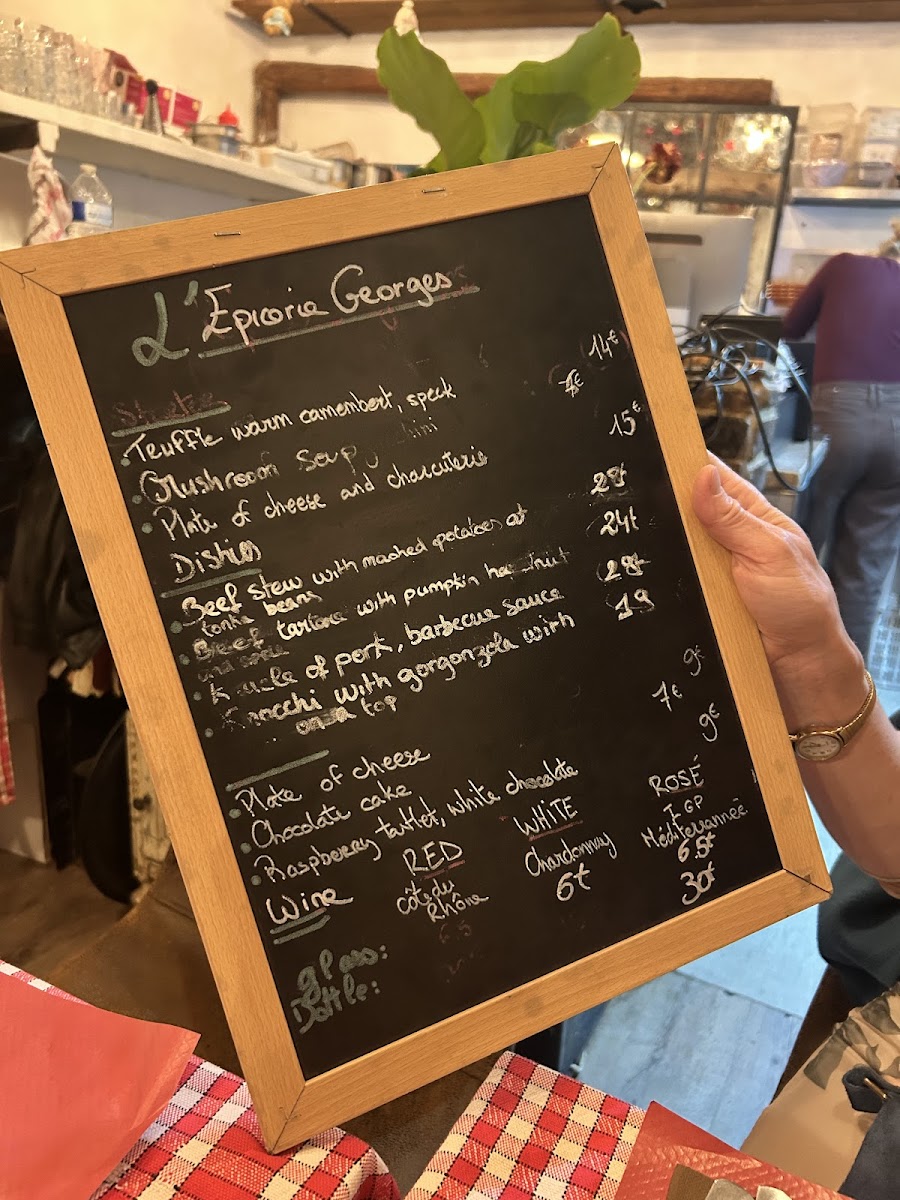 L'Epicerie Georges
Starters
• Truffle warm camembert, speck 14€
• Mushroom soup 7€
• Plate of cheese and charcuterie 15€
Dishes
Beef stew with mashed potatoes at 28€
tonka beans
• Beef tartare with pumpkin hazelnut 24€
and
• of pork, barbecue sauce 28€
• Knocchi with gorgonzola with 19
on top
• Plate of cheese 9€
• Chocolate cake 7€
• Raspberry tartlet, white chocolate 9€
Wine RED WHITE ROSÉ
côte du Rhône Chardonnay IGP Méditerrannée
glass: 6.5 6€ 6.5€
Bottle: 30€